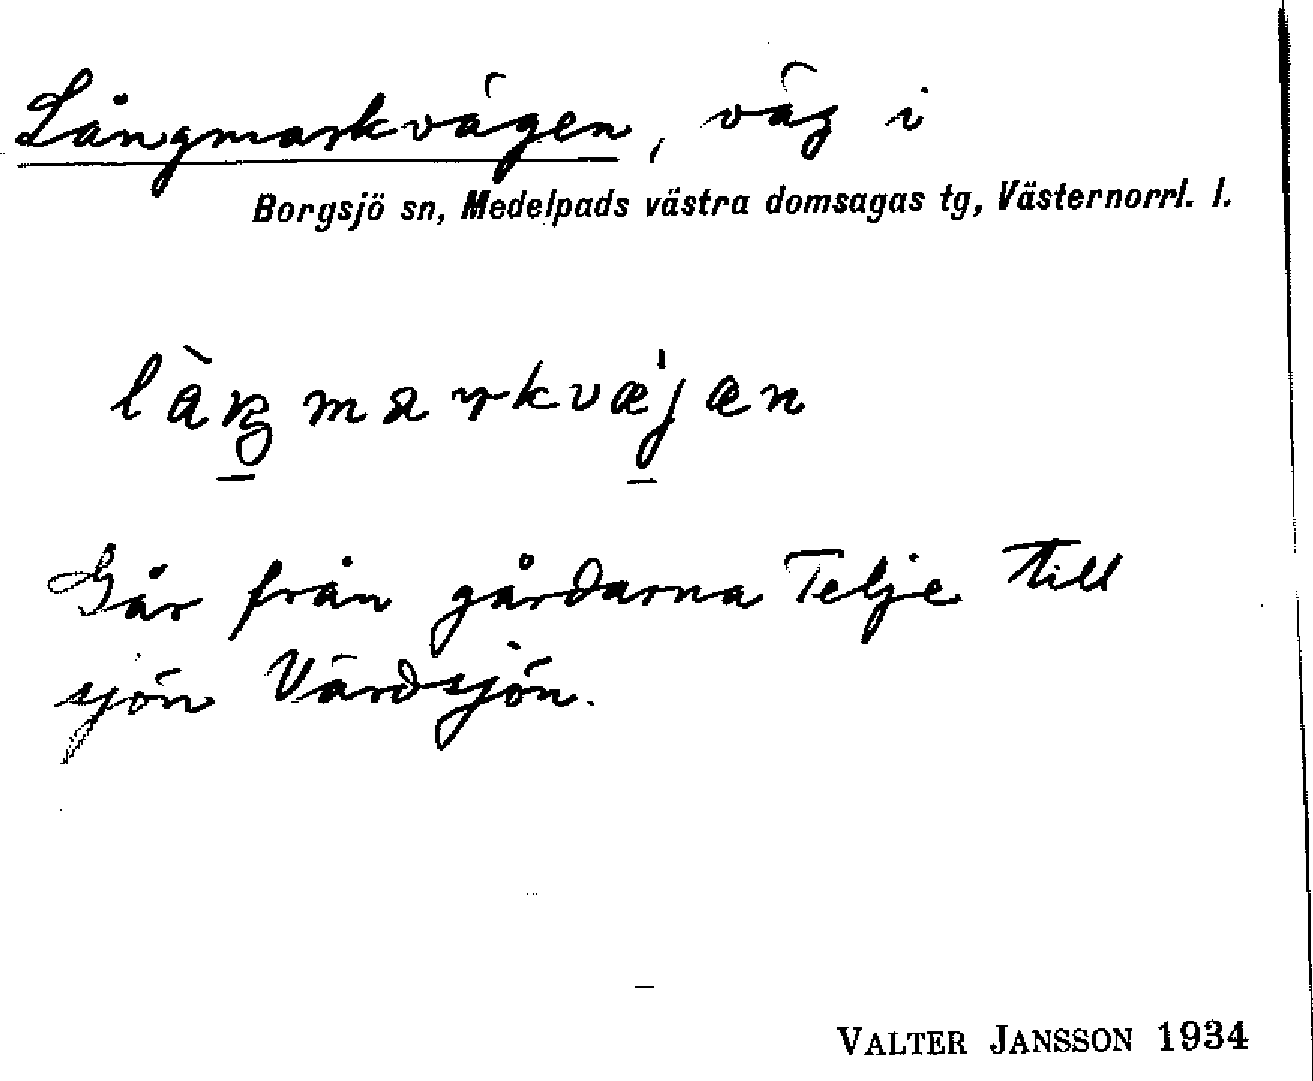 Långmarkvägen, väg i
Borgsjö sn, Medelpads västra domsagas tg, Västernorrl. l.
Går från gårdarna Telje till
sjön Värdsjön.
VALTER JANSSON 1934